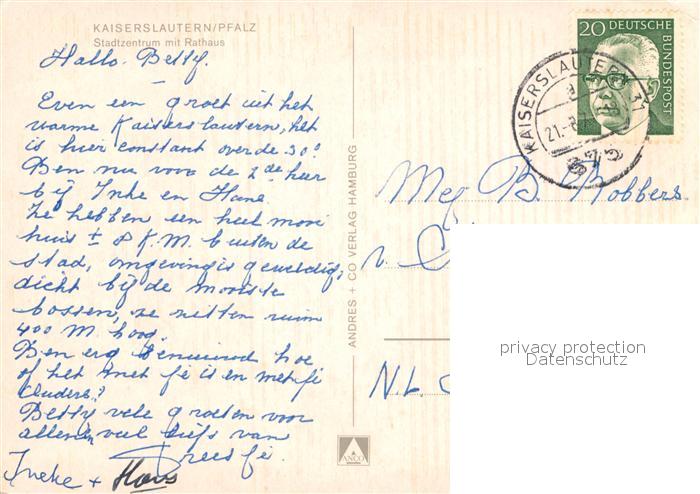 KAISERSLAUTERN/PFALZ
Stadtzentrum mit Rathaus
Hallo Betty.
Even een groet uit het
warme Kaiserslautern, het
is hier constant over de 30°
Ben nu voor de 2de keer
bij Ineke en Hans.
Ze hebben een heel mooi
huis ± 8 K.M. buiten de
stad, omgeving is geweldig,
dicht bij de mooiste
bossen, ze zitten ruim
400 M hoog.
Ben erg benieuwd hoe
of het met je is en met je
Ouders?
Betty vele groeten voor
allen en veel liefs van
Ineke + Hans
ANDRES + CO VERLAG HAMBURG
ANCO
20 DEUTSCHE
BUNDESPOST
KAISERSLAUTERN 31
21.-8.
Mej. B. Robbers
v.
N.L.
privacy protection
Datenschutz